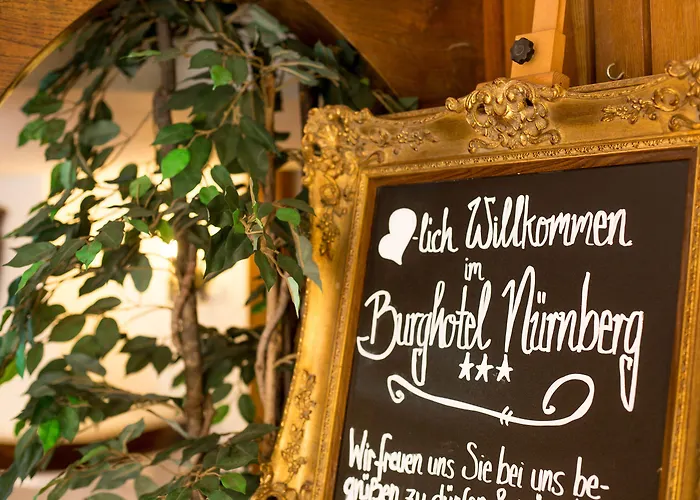 -lich Willkommen
im
Burghotel Nürnberg
Wir freuen uns Sie bei uns be-
grüßen zu dürfen